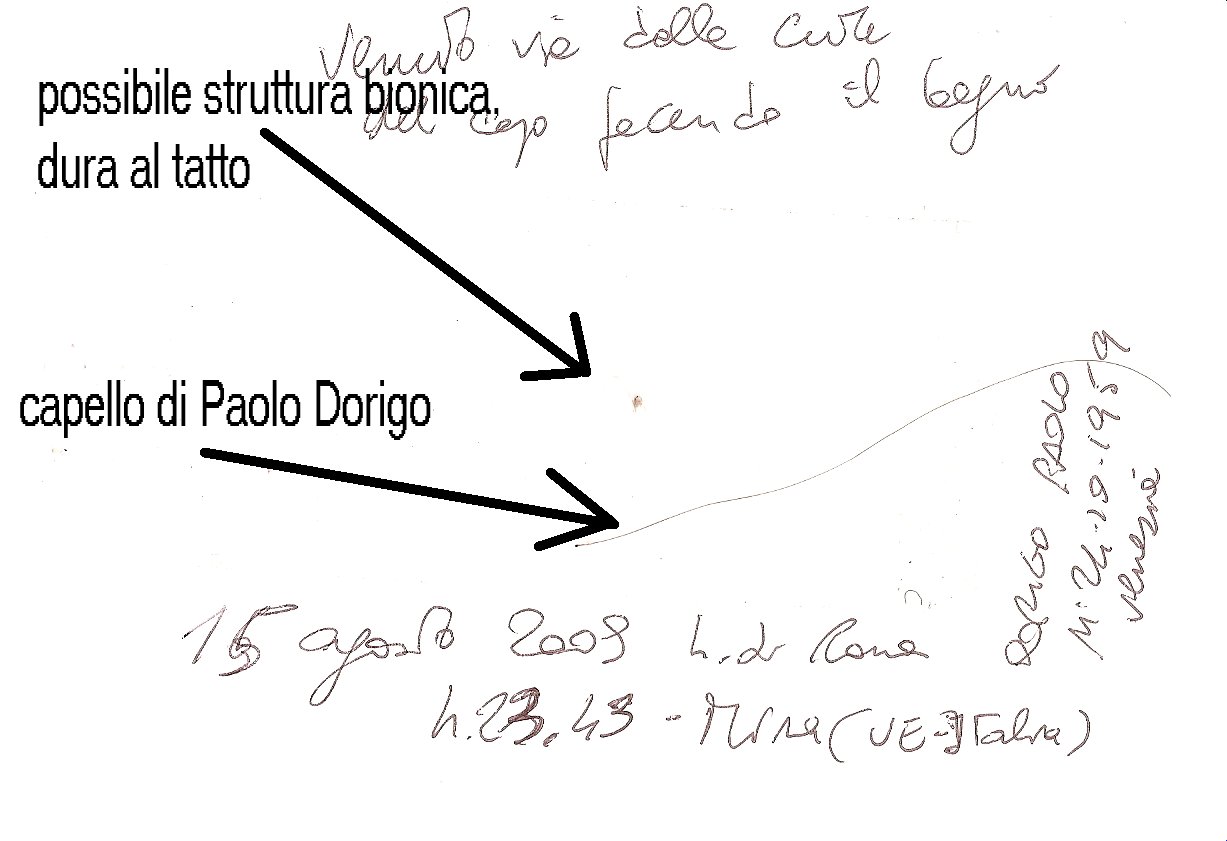 venuto via dalla cute
del capo facendo il bagno
possibile struttura bionica,
dura al tatto
capello di Paolo Dorigo
DORIGO PAOLO
N. 24-10-1959
Venezia
15 agosto 2009 h. di Roma
h. 23,43 - Mira (VE-Italia)